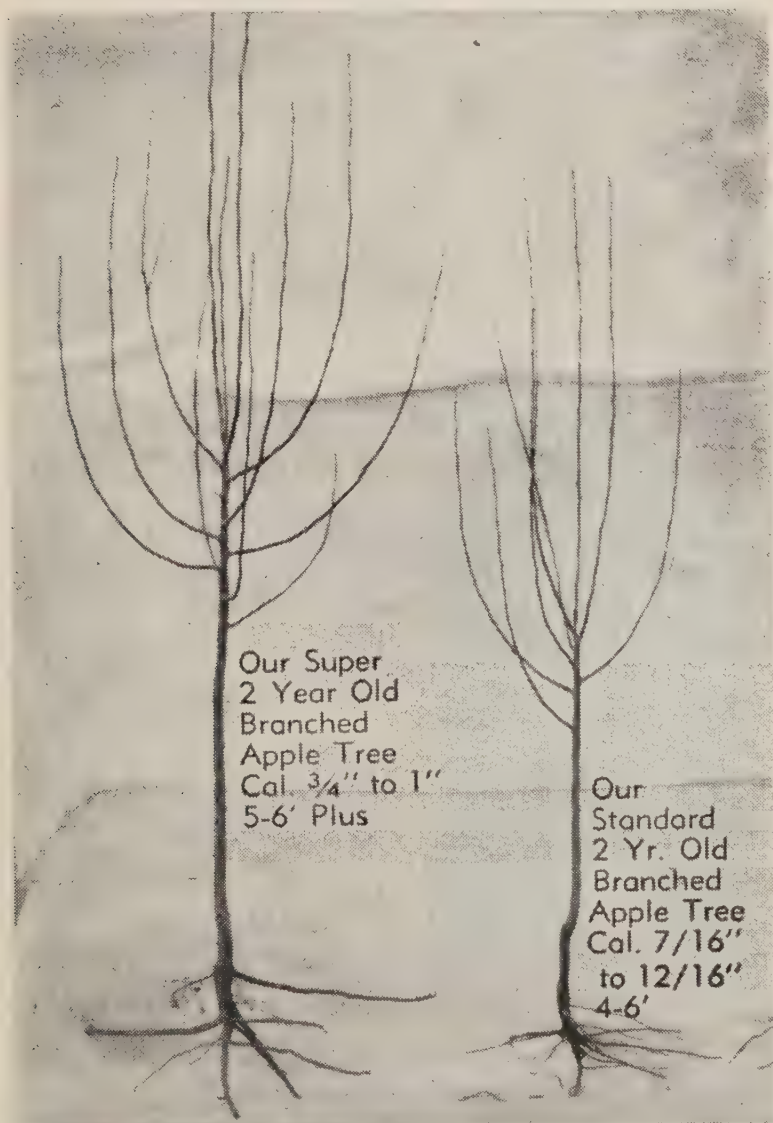 Our Super
2 Year Old
Branched
Apple Tree
Cal. ¾" to 1"
5-6' Plus
Our
Standard
2 Yr. Old
Branched
Apple Tree
Cal. 7/16"
to 12/16"
4-6'